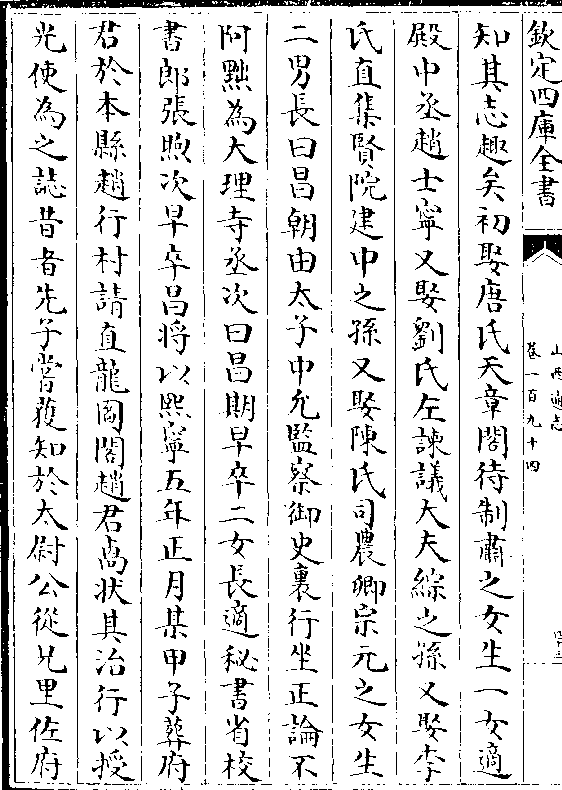 欽定四庫全書
山西通志
卷一百九十四
知其志趣矣初娶唐氏天章閣待制肅之女生一女適
殿中丞趙士寧又娶劉氏左諫議大夫綜之孫又娶李
氏直集賢院建中之孫又娶陳氏司農卿宗元之女生
二男長曰昌朝由太子中允監察御史裏行坐正論不
阿黜為大理寺丞次曰昌期早卒二女長適秘書省校
書郎張煦次早卒昌將以熙寧五年正月某甲子葬府
君於本縣趙行村請直龍圖閣趙君卨狀其治行以授
光使為之誌昔者先子嘗獲知於太尉公從兄里佐府